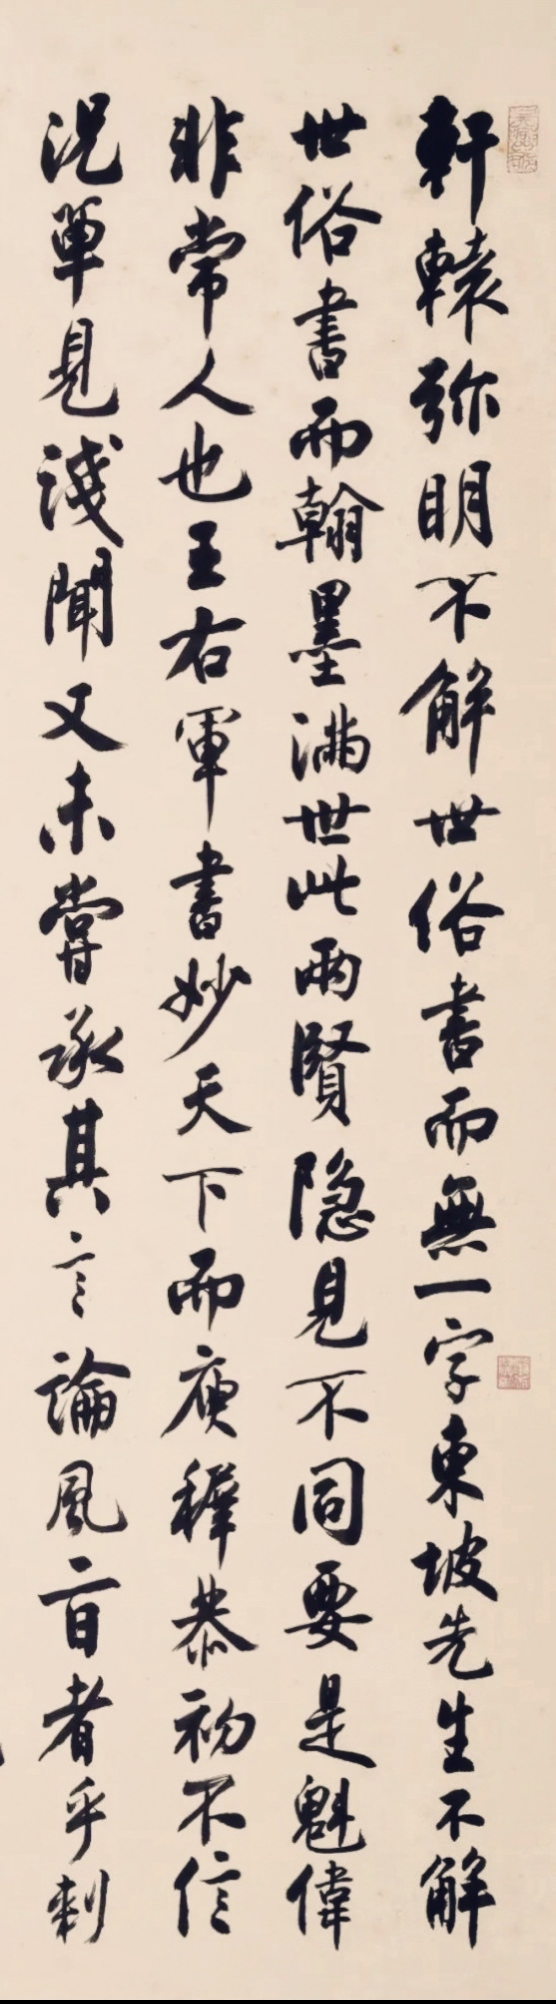 軒轅弥明不解世俗書而無一字東坡先生不解
世俗書而翰墨满世此兩賢隐見不同要是魁偉
非常人也王右軍書妙天下而庾稺恭初不信
況單見淺聞又未嘗承其言論風旨者乎刺